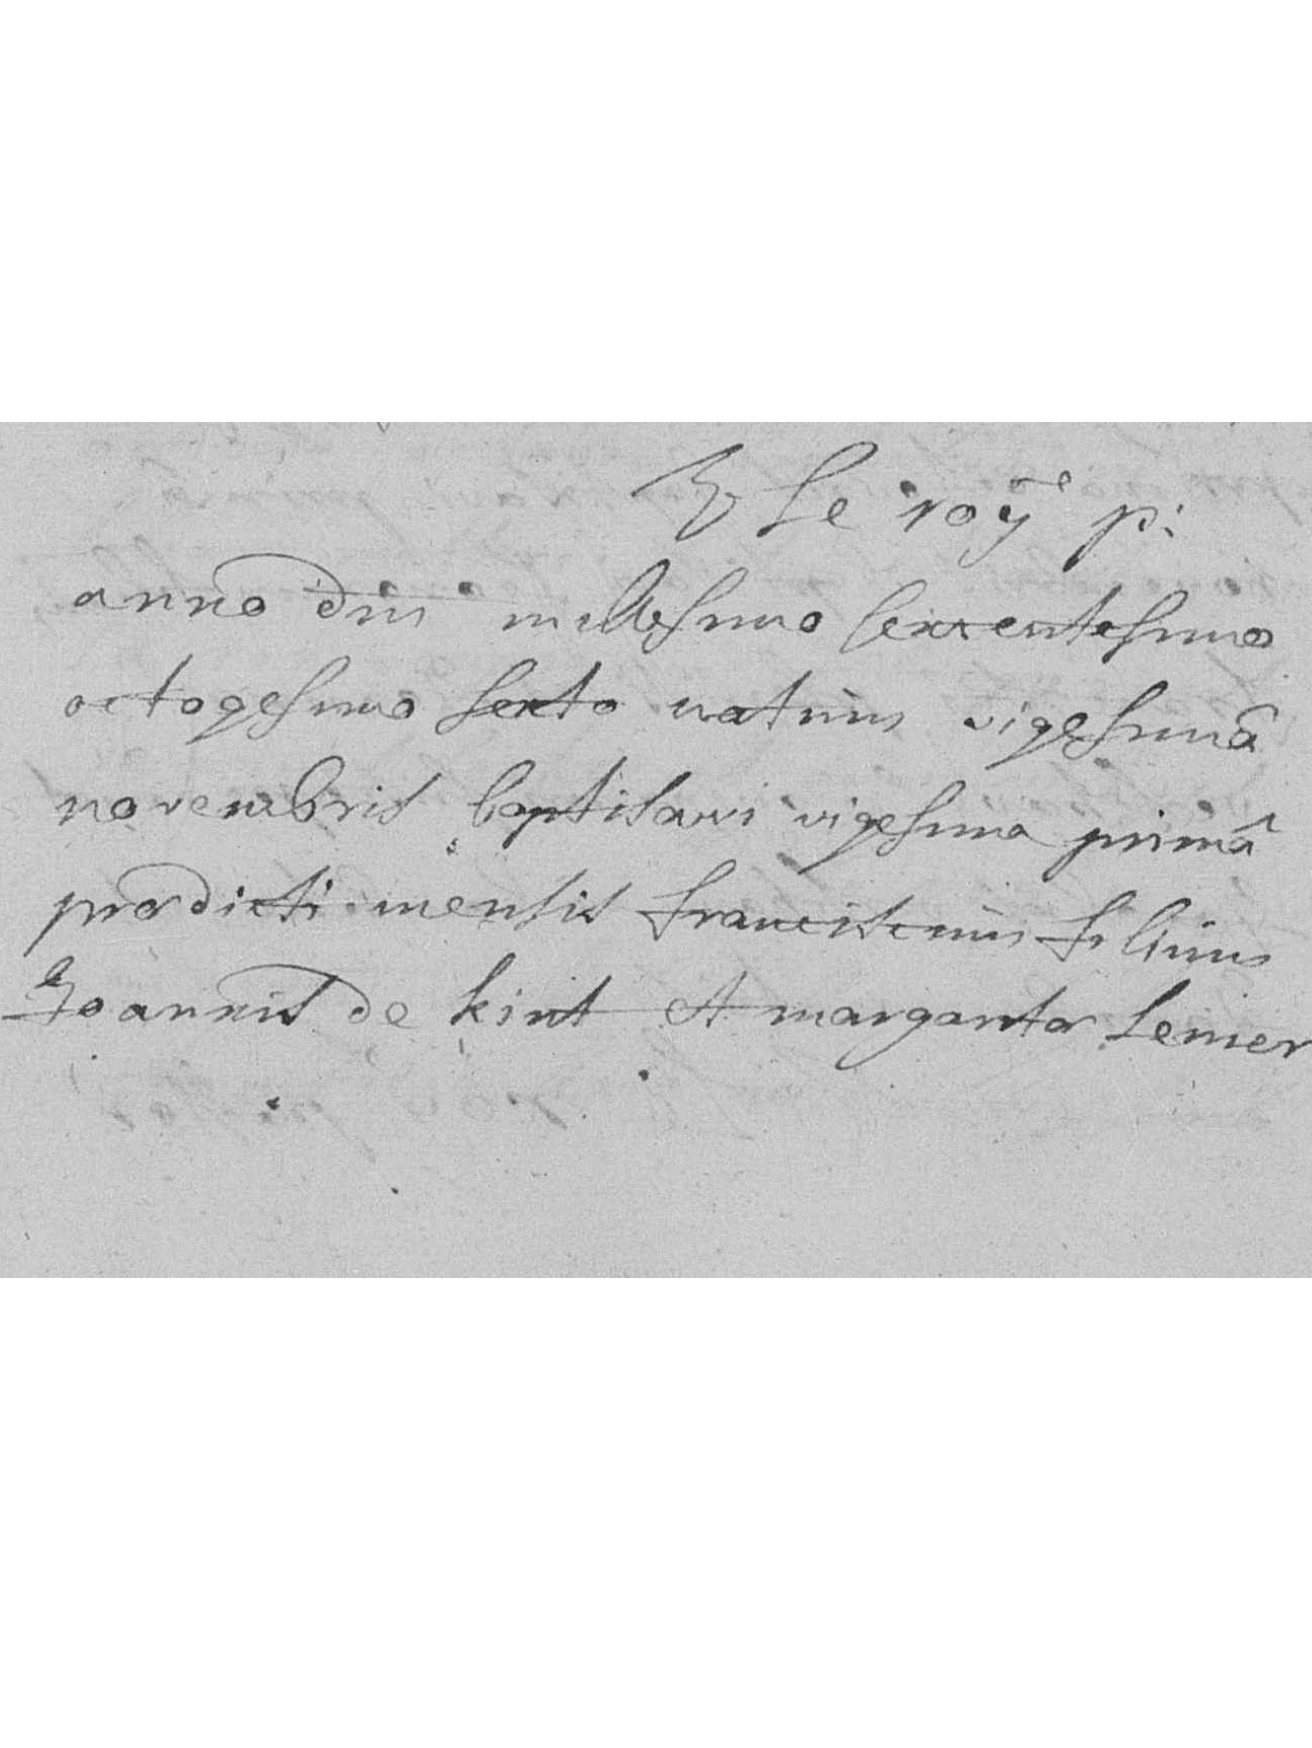 le roy p:
anno dni millesimo sexcentesimo
octogesimo sexto natum vigesimâ
novembris baptisavi vigesima primâ
praedicti mensis franciscum filium
Joannis de kint et margarita lemer